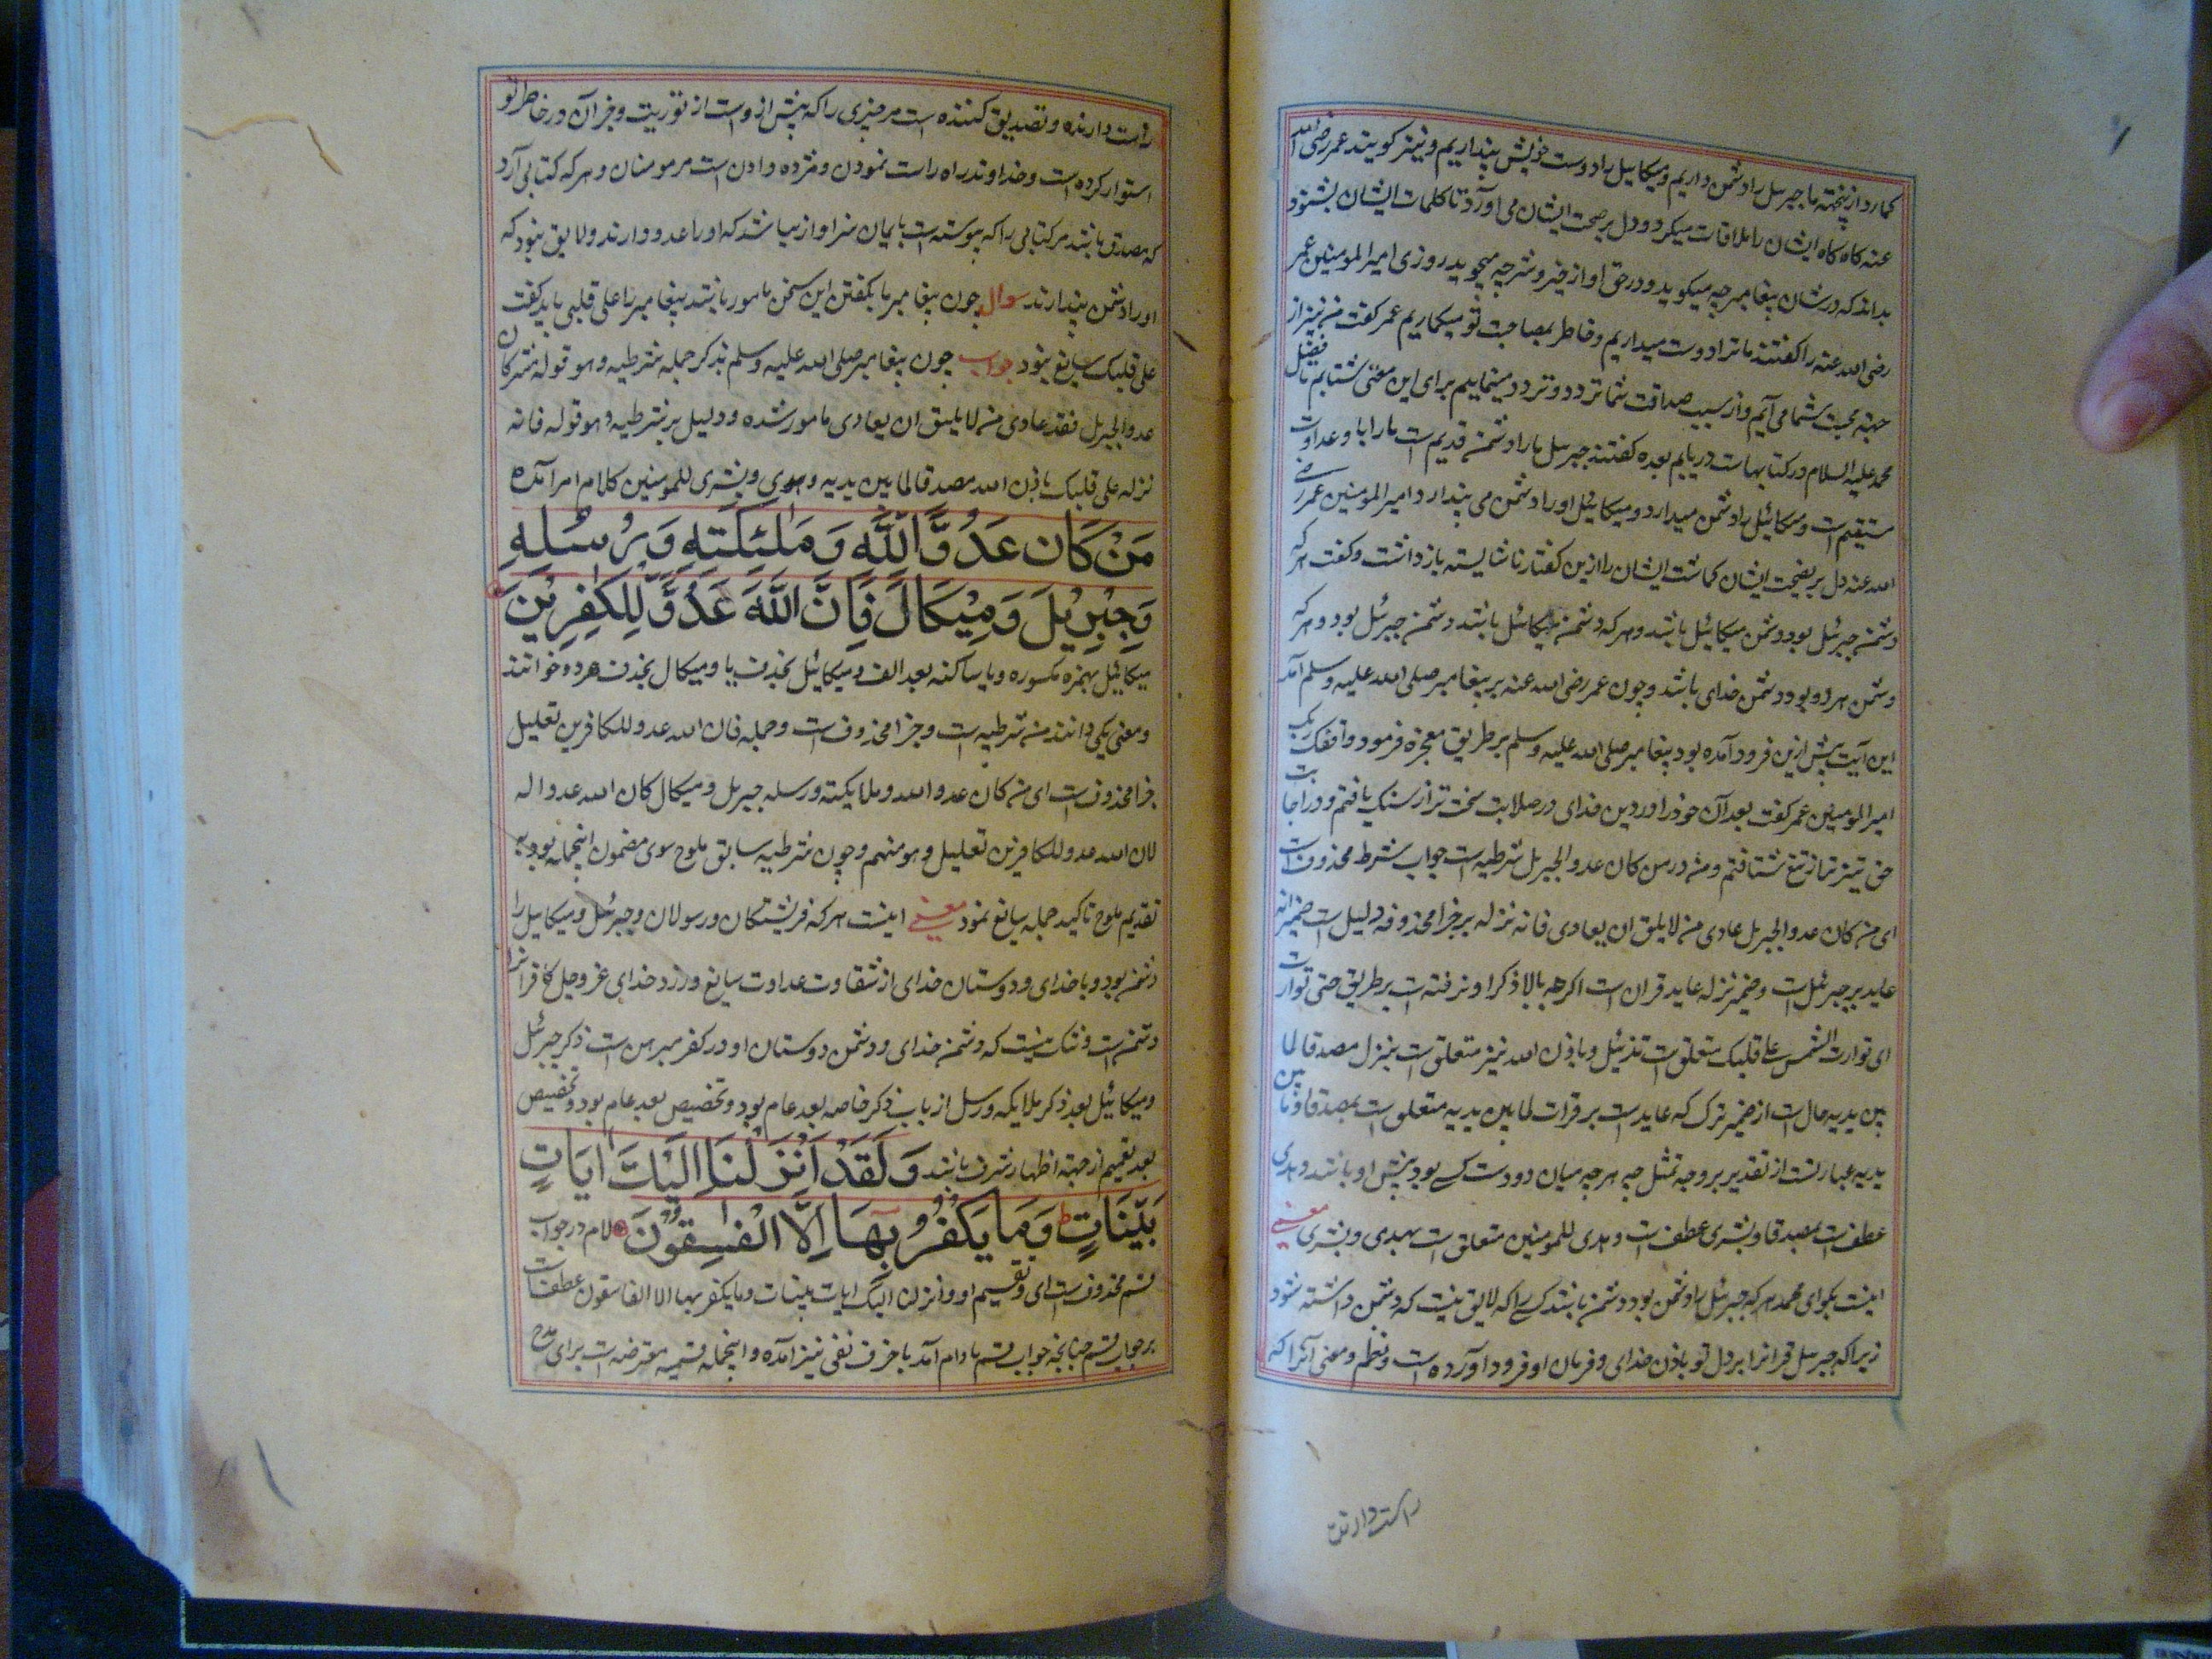 کمارد از پخته ما جبرسل را دشمن داریم و میکاییل را دوست خویش پنداریم و نیز کویند عمر رضی الله
عنه کاه کاه ایشان را ملاقات میکرد و دل بر صحبت ایشان می آورد تا کلمات ایشان بشنود
بداند که در شان پیغامبر چه میکویند و در حق او از خیر و شر چه میجویند روزی امیر المومنین عمر
رضی الله عنه را کفتند ما ترا دوست میداریم و خاطر بمصاحبت تو میکماریم عمر کفت من نیز از
جهة محبت شما می آیم و از سبب صداقت شما تردد و تردد مینماییم برای این معنی شتابم تا فضل
محمد علیه السلام در کتابهات دریابم بعده کفتند جبرسل ما را دشمن قدیم ست ما را با و عداوت
مستقیم است و میکائیل را دشمن میدارد و میکائیل او را دشمن می پندارد امیر المومنین عمر رضی
الله عنه دل بر نصیحت ایشان کماشت ایشان را ازین کفتار ناشایسته بازداشت و کفت هر که
دشمن جبرئیل بود دشمن میکائیل باشد و هر که دشمن میکائیل باشد دشمن جبرئیل بود و هر که
دشمن هر دو بود دشمن خدای باشد و چون عمر رضی الله عنه بر پیغامبر صلی الله علیه وسلم آمد
این آیت پیش ازین فرود آمده بود پیغامبر صلی الله علیه وسلم بر طریق معجزه فرمود وافقک ربک
امیر المومنین عمر کفت بعد آن خود را در دین خدای در صلابت سخت تر از سنک یافتم و در اجابت
حق تیزتر از تیغ شتافتم و من در من کان عدوا لجبریل شرطیه است جواب شرط محذوف است
ای من کان عدوا لجبریل عادی من لا یلیق ان یعادی فانه نزله بر جزا محذوفه دلیل است ضمیر انه
عاید بر جبرئیل است و ضمیر نزله عاید قران است اکرچه بالا ذکر او نرفته است بر طریق حتی توارت
ای توارت الشمس علی قلبک متعلق است تنزیل و باذن الله نیز متعلق است بنزل مصدقا لما
بین یدیه حال است از ضمیر نزل که عاید است بر قرات لما بین یدیه متعلق است بمصدقا و ما بین
یدیه عبارتست از تقدیر بر وجه تمثل چه هر چه میان دو دست کسی بود پیش او باشد و هدی
عطف است بمصدقا و بشری عطف است و هدی للمومنین متعلق است بهدی و بشری معنی
اینست بکو ای محمد هر که جبرئیل را دشمن بود دشمن باشد کسی را که لایق نیست که دشمن داشته شود
زیرا که جبرسل قرانرا بر دل تو باذن خدای و فرمان او فرود آورده است و نظم و معنی آنرا که
راست دارنده
راست دارنده و تصدیق کننده است مر چیزی را که پیش از وست از توریت و جز آن در خاطر تو
استوار کرده است و خداوند راه راست نمودن و مژده دادن است مر مومنان و هر که کتابی آرد
که مصدق باشد مر کتابی را که پیوسته است بایمان سزاوار نباشد که او را عدو دارند و لایق نبود که
او را دشمن پندارند سوال چون پیغامبر ما بکفتن این سخن مامور باشد پیغامبر را علی قلبی باید کفت
علی قلبک سایغ نبود جواب چون پیغامبر صلی الله علیه وسلم بذکر جمله شرطیه و هو قوله من کان
عدوا لجبریل فقد عادی من لا یلیق ان یعادی مامور شده و دلیل بر شرطیه و هو قوله فانه
نزله علی قلبک باذن الله مصدقا لما بین یدیه و هدی و بشری للمومنین کلام امر آمده
مَنْ كَانَ عَدُوًّا لِلَّهِ وَمَلٰئِكَتِهِ وَرُسُلِهِ
وَجِبْرِيْلَ وَمِيْكَالَ فَاِنَّ اللَّهَ عَدُوٌّ لِلْكٰفِرِيْنَ
میکائیل بهمزه مکسوره و یا ساکنه بعد الف و میکائیل بحذف یا و میکال بحذف هر دو خوانند
و معنی یکی دانند من شرطیه است و جزا محذوف است و جمله فان الله عدو للکافرین تعلیل
جزا محذوف است ای من کان عدوا الله و ملایکته و رسله جبریل و میکال کان الله عدوا له
لان الله عدو للکافرین تعلیل و هو منهم و چون شرطیه سابق ملوح سوی مضمون اینجمله بود به
تقدیم ملوح تاکید جمله سایغ نمود معنی اینست هر که فریشتکان و رسولان و جبرئیل و میکاییل را
دشمن بود و با خدای و دوستان خدای از شقاوت عداوت سایغ ورزد خدای عز وجل کافرانرا
دشمن است و شک نیست که دشمن خدای و دشمن دوستان او در کفر مبرهن است ذکر جبرئیل
و میکائیل بعد ذکر ملایکه و رسل از باب ذکر خاصه بعد عام بود و تخصیص بعد عام بود و تخصیص
بعد تعمیم از جهة اظهار شرف باشد وَلَقَدْ اَنْزَلْنَا اِلَيْكَ اٰيَاتٍ
بَيِّنَاتٍ وَمَا يَكْفُرُ بِهَا اِلَّا الْفٰسِقُوْنَ لام در جواب
قسم محذوف است ای و تقسیم او و انزلنا الیک ایات بینات و ما یکفر بها الا الفاسقون عطف است
بر جواب قسم چنانچه جواب قسم با دام آمد با حرف نفی نیز آمده و اینجمله قسمیه معترضه است برای مدح